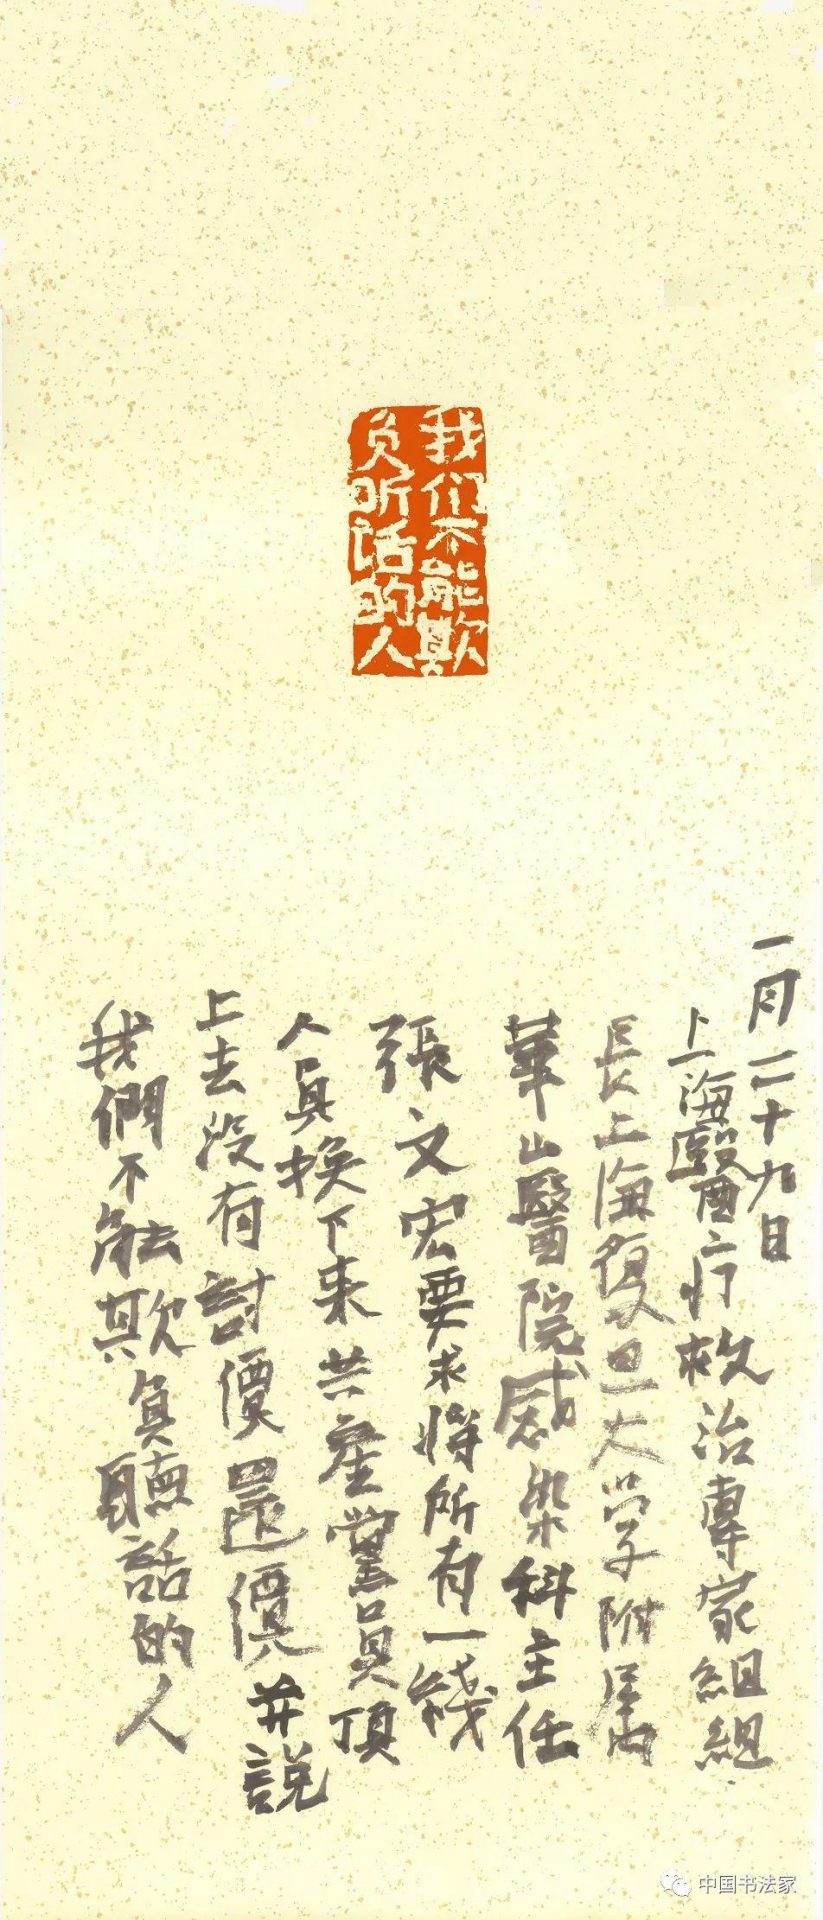 我们不能欺
负听话的人
一月二十九日
上海醫疗救治專家組組
長上海復旦大学附属
華山醫院感染科主任
張文宏要求将所有一綫
人員换下来共産黨員頂
上去没有討價還價并説
我們不能欺負聽話的人
中国书法家